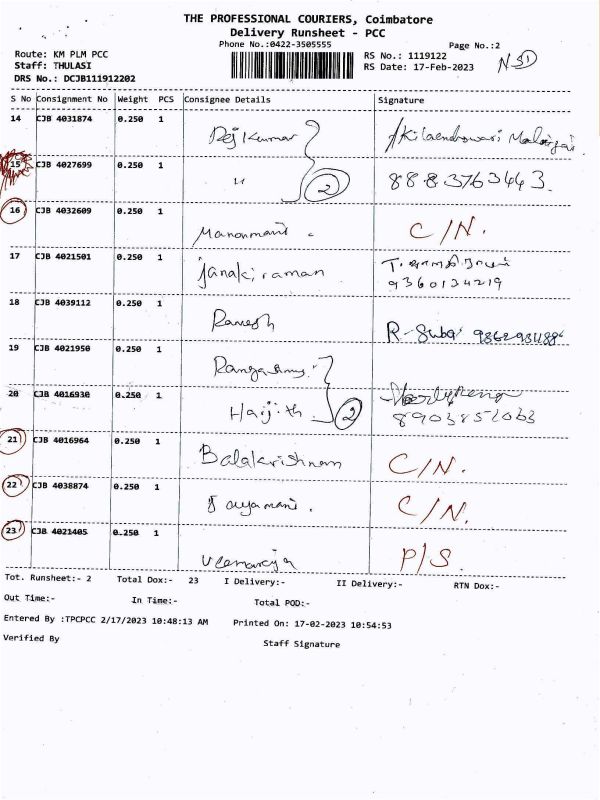 THE PROFESSIONAL COURIERS, Coimbatore
Delivery Runsheet - PCC
Phone No.:0422-3505555
Page No.:2
Route: KM PLM PCC
RS No.: 1119122
Staff: THULASI
RS Date: 17-Feb-2023
DRS No.: DCJB111912202
S No Consignment No Weight PCS Consignee Details Signature
14 CJB 4031874 0.250 1 Rajkumar
15 CJB 4027699 0.250 1 " 2 8883763443.
16 CJB 4032609 0.250 1 C/N.
17 CJB 4021501 0.250 1 Janakiraman
9360134219
18 CJB 4039112 0.250 1 Ramesh R-Suba
19 CJB 4021950 0.250 1
20 CJB 4016930 0.250 1 Harjith 2
21 CJB 4016964 0.250 1 Balakrishnan C/N.
22 CJB 4038874 0.250 1 C/N.
23 CJB 4021405 0.250 1 P/S.
Tot. Runsheet:- 2 Total Dox:- 23 I Delivery:- II Delivery:- RTN Dox:-
Out Time:- In Time:- Total POD:-
Entered By :TPCPCC 2/17/2023 10:48:13 AM Printed On: 17-02-2023 10:54:53
Verified By Staff Signature